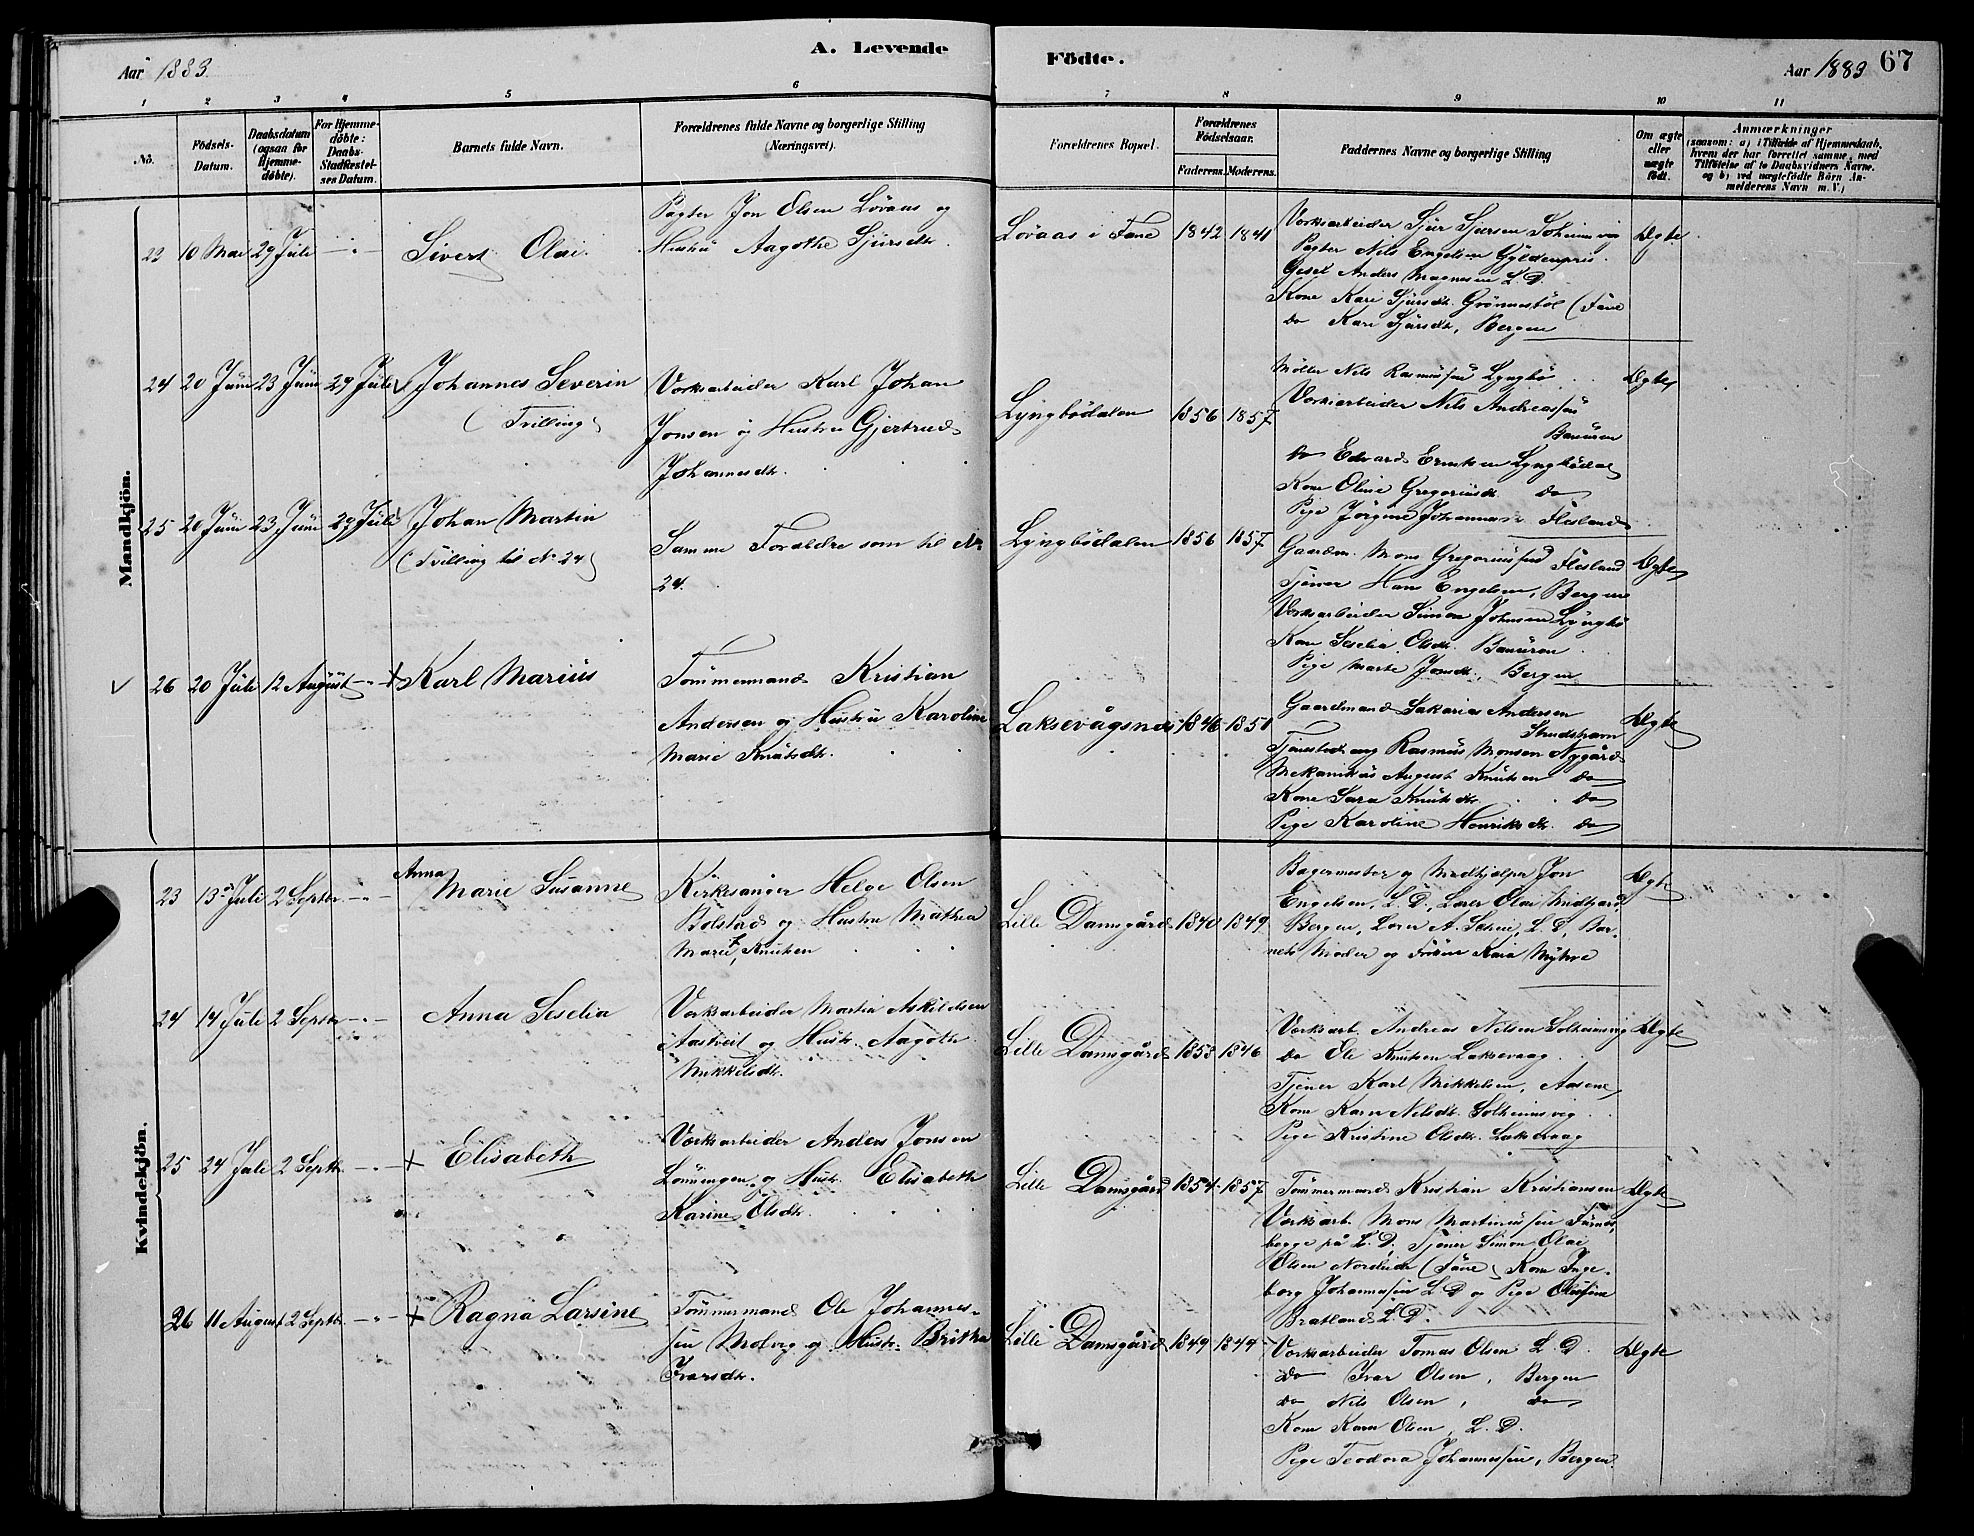 A. Levende Födte.
Aar 1883.
Aar 1883 67
1 2 3 4 5 6 7 8 9 10 11
No.
Födsels-Datum.
Daabsdatum (ogsaa for Hjemme-döbte).
For Hjemme-döbte: Daabs-Stadfæstel-ses Datum.
Barnets fulde Navn.
Forældrenes fulde Navne og borgerlige Stilling
(Næringsvei).
Forældrenes Bopæl.
Forældrenes Födselsaar.
Faderens. Moderens.
Faddernes Navne og borgerlige Stilling
Om ægte eller uægte födt.
Anmærkninger
(saasom: a) i Tilfælde af Hjemmedaab,
hvem der har forrettet samme, med
Tilföielse af to Daabsvidners Navne,
og b) ved uægtefödte Börn An-
melderens Navn m. V.)
Mandkjön.
23 10 Mai 29 Juli - " - Sivert Olai.
Pagter Jon Olsen Lövaas og
Hustru Aagothe Sjursdtr.
Lövaas i Fane 1842 1841
Værksarbeider Sjur Sjursen Solheimsvig
Pagter Nils Engelsen Gyldenpris.
Gesel Anders Magnesen L. D.
Kone Kari Sjursdtr. Grönnestöl (Fane
Do Kari Sjursdtr, Bergen
Ægte
24 20 Juni 23 Juni 29 Juli Johannes Severin
(Tvilling)
Værksarbeider Karl Johan
Jonsen og Hustru Gjertrud
Johannesdtr.
Lyngbödalen 1856 1857
Möller Nils Rasmussen Lyngbö
Værksarbeider Nils Andreassen
Do Edvard Lyngbödal
Kone Oline Gregoriusdtr. Do
Pige Jörgine Johannesdtr. Flesland
Ægte
25 20 Juni 23 Juni 29 Juli Johan Martin
(Tvilling til No 24)
Samme Forældre som til No
24.
Lyngbödalen 1856 1857
Gaardm. Mons Gregoriussen Flesland
Tjener Hans Engelsen, Bergen
Værksarbeider Simon Johnsen Lyngbö
Kone Seselia Olsdtr.
Pige Marte Jonsdtr., Bergen
Ægte
26 20 Juli 12 August - " - Karl Marius
Tömmermand Kristian
Andersen og Hustru Karoline
Marie Knutsdtr.
Laksevågsnes 1846 1851
Gaardmand Sakarias Andersen
Skudshavn
Rasmus Monsen Nygård
Mekanikus August Knutsen Do
Kone Sara Knutsdtr. Do
Pige Karoline Henriksdtr. Do
Ægte
Kvindekjön.
23 13 Juli 2 Septbr - " - Anna Marie Susanne
Kirkesanger Helge Olsen
Bolstad og Hustru Mathea
Marie Knutsen
Lille Damsgård 1840 1849
Bagermester og Medhjælper Jon
Engelsen, L. D., Lærer Olai
Bergen, Lærer A. L. D, Bar-
nets Moder og Kaia
Ægte
24 14 Juli 2 Septbr - " - Anna Seselia
Værksarbeider Martin Askildsen
Aastveit og Hustr. Aagothe
Mikkelsdtr.
Lille Damsgård 1853 1846
Værksarb. Andreas Nilsen Solheimsvig
Do Ole Knutsen Laksevaag
Tjener Karl Mikkelsen, Aasene
Kone Karen Nilsdtr. Solheimsvig
Pige Kristine Olsdtr. Laksevaag
Ægte
25 24 Juli 2 Septbr - " - Elisabeth
Værksarbeider Anders Jonsen
Lönningen og Hustr. Elisabeth
Karine Olsdtr.
Lille Damsgård 1854 1857
Tömmermand Kristian Kristiansen
Værksarb. Mons Martinussen
begge på L. D. Tjener Simon Olai
Olsen (Fane) Kone Inge-
borg Johannessen L D og Pige
Bratland L. D.
Ægte
26 11 August 2 Septbr - " - Ragna Larsine
Tömmermand Ole Johannes-
sen Moberg og Hustr. Britha
Ivarsdtr.
Lille Damsgård 1849 1844
Værksarbeider Tomas Olsen L. D.
Do Ivar Olsen, Bergen
Do Nils Olsen, Do
Kone Karen Olsen, L. D.
Pige Teodora Johannessen, Bergen.
Ægte